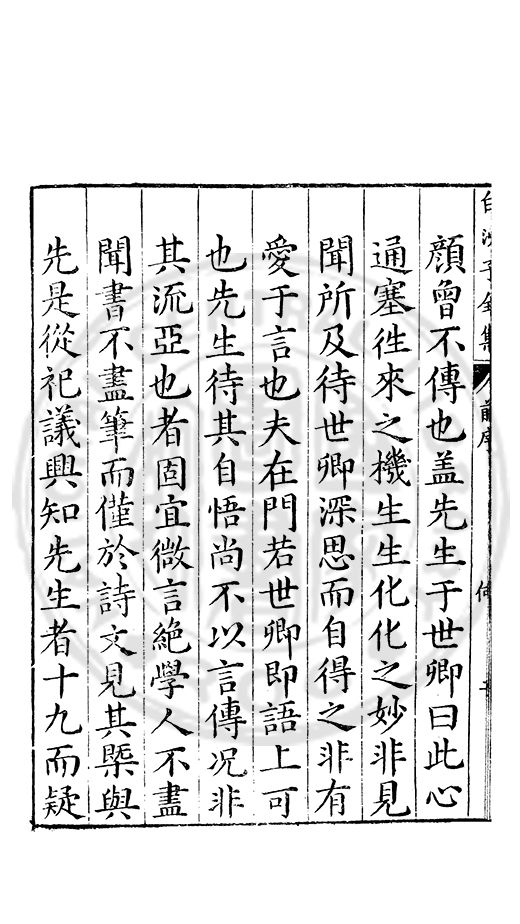 顔曾不傳也盖先生于世卿曰此心
通塞徃來之機生生化化之妙非見
聞所及待世卿深思而自得之非有
愛于言也夫在門若世卿即語上可
也先生待其自悟尚不以言傳况非
其流亞也者固宜微言絶學人不盡
聞書不盡筆而僅於詩文見其槩與
先是從祀議興知先生者十九而疑